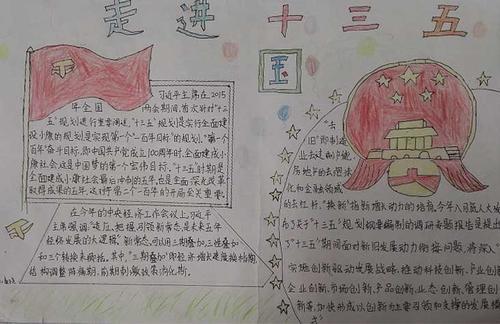 走进十三五
习近平主席在2015
年全国两会期间,首次针对"十三
五"规划进行重要阐述,"十三五"规划是实行全面建
设小康的规划是实现第一个"一百年目标"的规划。"第一个
百年"奋斗目标,即中国共产党成立100周年时,全面建成小
康社会这是中国梦的第一个宏伟目标。"十三五"时期是
全面建成小康社会最后冲刺的五年,也是全面深化改革
取得成果的五年,这对于第二个一百年的开局至关重要。
在今年的中央经济工作会议上习近平
主席强调:"适应、把握、引领新常态是未来五年
经济发展的大逻辑"。新常态,可以用三期叠加、三性叠加
和三个转换来概括。其中,"三期叠加"即经济增长速度换档期
结构调整阵痛期、前期刺激政策消化期。
"去
旧"即制造
业去过剩产能、
房地产的去泡沫
化和金融领域
的去杠杆。"换新"指新增动力的培育。今年入司就人大发
布了关于"十三五"规划纲要编制的调研专题报告是提出
了"十三五"期间面对新旧发展动力衔接问题,将深入
实施创新驱动发展战略,推动科技创新、产业创
企业创新、市场创新、产品创新、业态创新、管理创
新等,加快形成以创新为主要引领和支撑的发展模
式